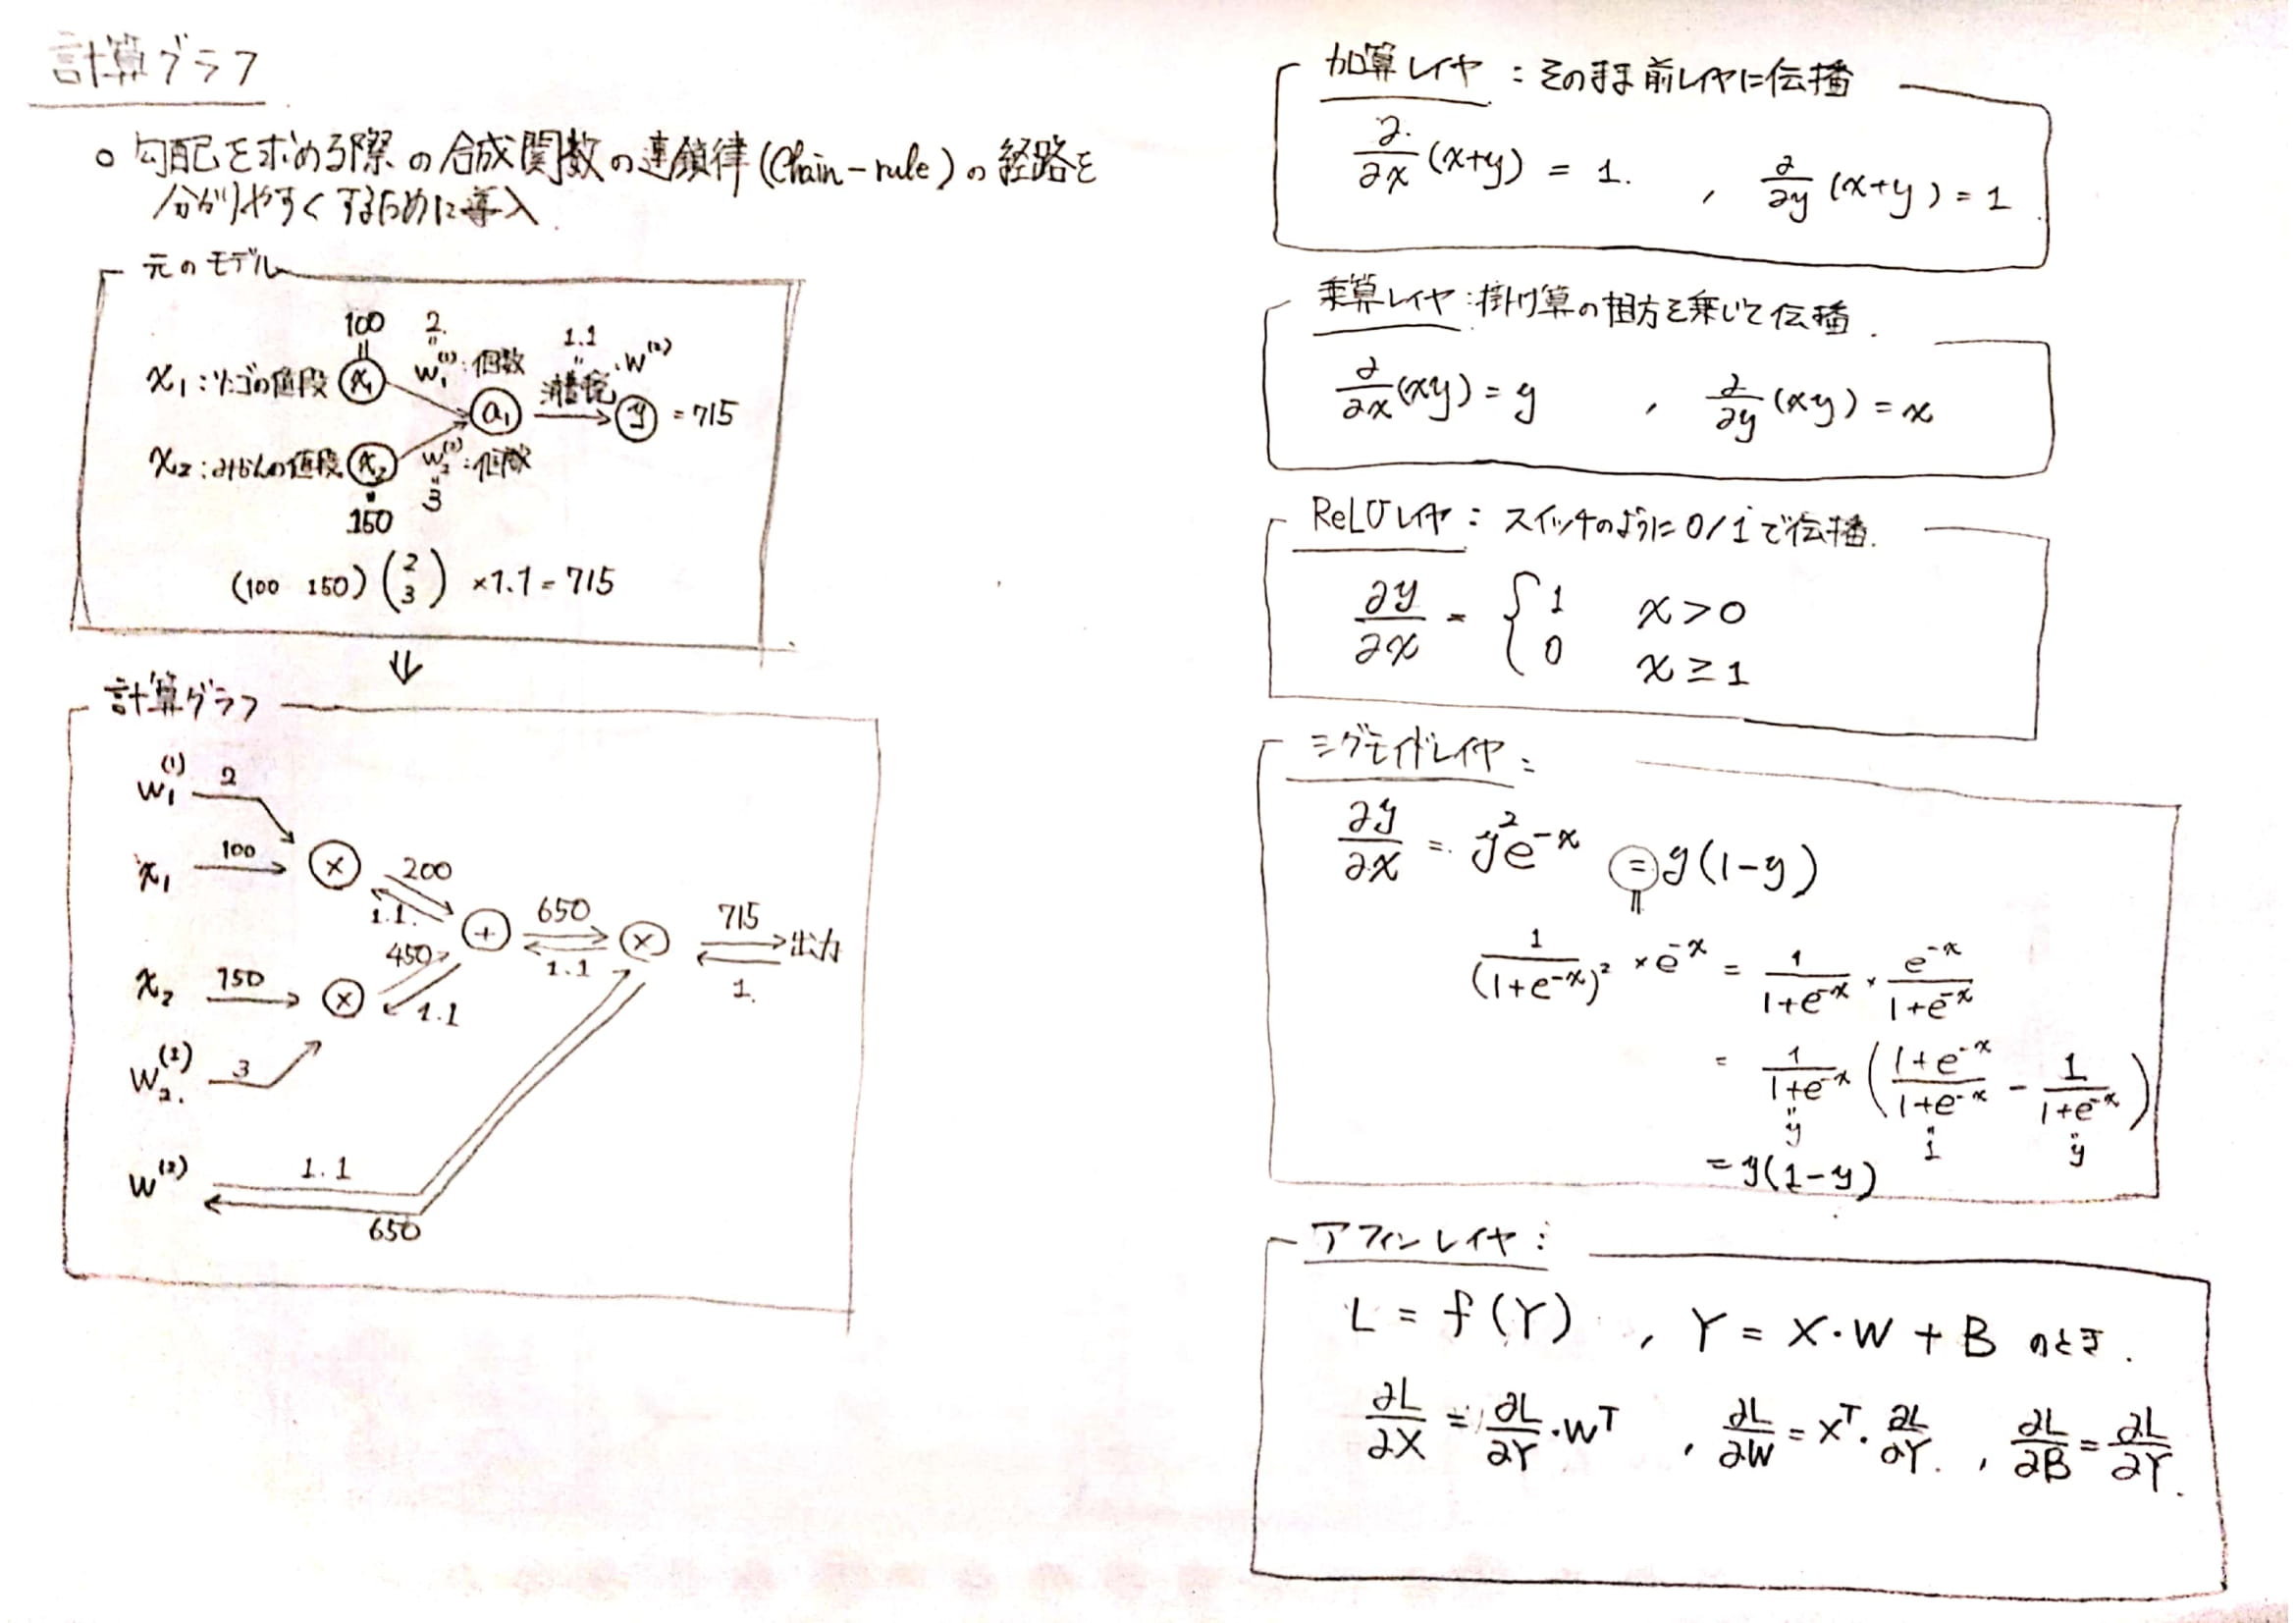 計算グラフ
○ 勾配を求める際の合成関数の連鎖律(Chain-rule)の経路を
分かりやすくするために導入.
元のモデル
100 2. 1.1
x₁:リンゴの値段 x₁ w₁⁽¹⁾:個数 消費税 w⁽²⁾
a₁ y = 715
x₂:みかんの値段 x₂ w₂⁽¹⁾:個数
150 3
(100 150) (2 3) ×1.1 = 715
⇓
計算グラフ
w₁⁽¹⁾ 2
x₁ 100 × 200
1.1. + 650 × 715 出力
450 1.1 1.
x₂ 150 × 1.1
w₂.⁽¹⁾ 3
w⁽²⁾ 1.1
650
加算レイヤ:そのまま前レイヤに伝播
∂/∂x (x+y) = 1. , ∂/∂y (x+y) = 1
乗算レイヤ:掛け算の相方を乗じて伝播.
∂/∂x (xy) = y , ∂/∂y (xy) = x
ReLUレイヤ: スイッチのように0/1で伝播.
∂y/∂x = { 1 x > 0
0 x ≥ 1
シグモイドレイヤ:
∂y/∂x = y²e⁻ˣ = y(1-y)
1/(1+e⁻ˣ)² × e⁻ˣ = 1/(1+e⁻ˣ) × e⁻ˣ/(1+e⁻ˣ)
= 1/(1+e⁻ˣ) ( (1+e⁻ˣ)/(1+e⁻ˣ) - 1/(1+e⁻ˣ) )
y 1 y
= y(1-y)
アフィンレイヤ:
L = f(Y) , Y = X・W + B のとき.
∂L/∂X = ∂L/∂Y・Wᵀ , ∂L/∂W = Xᵀ・∂L/∂Y. , ∂L/∂B = ∂L/∂Y.